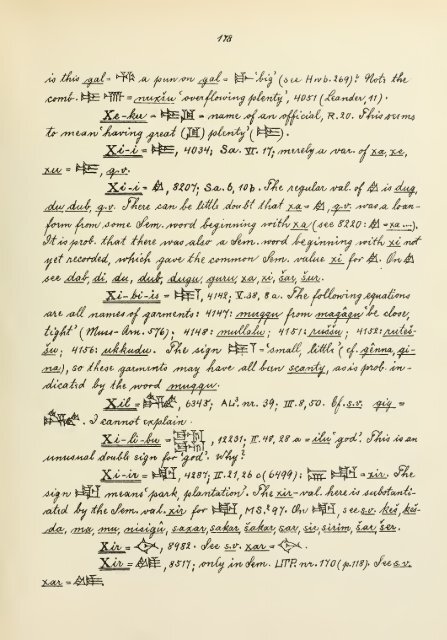 178
is this gal = a pun on gal = 'big' (see Hrob. 269)? Note the
comb. = nuxšu 'overflowing plenty', 4051 (Leander, 11).
Xe-ku = = name of an official, R. 20. This seems
to mean 'having great () plenty' ().
Xi-i = , 4034; Sa. VI. 17; merely a var. of xa, xe,
xu = , q.v.
Xi-i = , 8207; Sa. 6, 10b. The regular val. of is dug,
du, dub, q.v. There can be little doubt that xa = , q.v. was a loan-
form from some Sem. word beginning with xa (see 8220: = xa...).
It is prob. that there was also a Sem. word beginning with xi not
yet recorded, which gave the common Sem. value xi for . On
see dab, di, du, dub, dugu, guru, xa, xi, šar, šur.
Xi-bi-is = , 4142; V. 38, 8 a. The following equations
are all names of garments: 4147: muqqu from maqâqu 'be close,
tight' (Muss-Arn. 576); 4148: mullalu; 4151: ruššu; 4152: ruteš-
šu; 4156: ukkudu. The sign = 'small, little' (cf. gênna, gi-
na), so these garments may have all been scanty, as is prob. in-
dicated by the word muqqu.
Xil = , 6345; AL³. nr. 39; III. 8, 50. Cf. s.v. gig =
. I cannot explain.
Xi-li-bu = , 12231; II. 48, 28 a = ilu 'god'. This is an
unusual double sign for 'god'. Why?
Xi-ir = , 4287; II. 21, 26 c (6499); = xir. The
sign means 'park, plantation'. The xir-val. here is substanti-
ated by the Sem. val. xir for , MS.² 97. On , see s.v. keš, keš-
da, ma, mu, nisigû, saxar, sakar, šakar, sar, sir, sirim, šar, šer.
Xir = , 8982. See s.v. xar = .
Xir = , 8517; only in Sem. LITP. nr. 170 (p. 118). See s.v.
xar = .